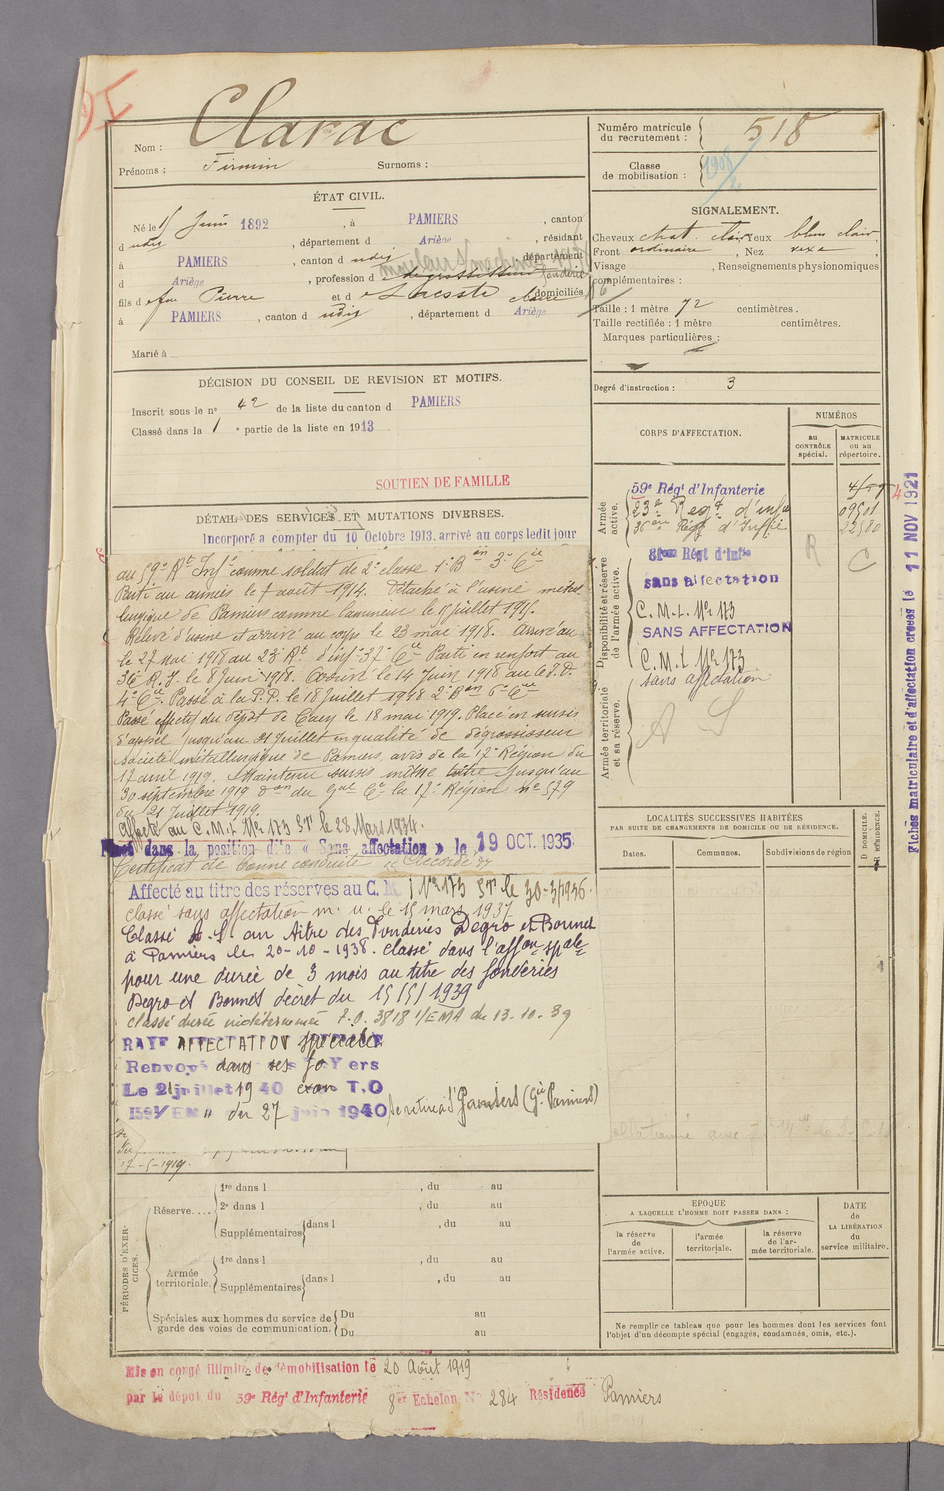 Nom : Clarac
Prénoms : Firmin Surnoms :
ÉTAT CIVIL.
Né le Juin 1892, à PAMIERS, canton
d udis, département d Ariège, résidant
à PAMIERS, canton d udis, département
d Ariège, profession d fondeur
fils d feu Pierre et d domiciliés
à PAMIERS, canton d udis, département d Ariège
Marié à
DÉCISION DU CONSEIL DE REVISION ET MOTIFS.
Inscrit sous le nº 42 de la liste du canton d PAMIERS
Classé dans la 1 e partie de la liste en 1913
SOUTIEN DE FAMILLE
DÉTAIL DES SERVICES ET MUTATIONS DIVERSES.
Incorporé a compter du 10 Octobre 1913. arrivé au corps ledit jour
au 59e Rt Infie comme soldat de 2e classe
Parti aux armées le 7 août 1914. Détaché à l'usine métal
lurgique de Pamiers comme lamineur le juillet 191
Relevé d'usine et arrivé au corps le 23 mai 1918. Arrivé au
le 27 mai 1918 au 23e Rt d'inf 37e Cie Parti en renfort au
36 R.I. le 8 Juin 1918. Arrivé le 14 Juin 1918 au
4e Cie. Passé à la le 18 Juillet 1918
Passé effectif du dépôt de Caen le 18 mai 1919. Placé en sursis
d'appel jusqu'au 21 Juillet en qualité de dégrossisseur
société métallurgique de Pamiers, avis de la 17e Région du
17 avril 1919. Maintenu sursis même titre jusqu'au
30 septembre 1919 du Gal Ct la 17e Région nº 579
du 21 Juillet 1919.
Affecté au C.M.I. Nr 173 ST le 28 Mars 1934.
Placé dans la position dite « Sans affectation » le 19 OCT. 1935
Certificat de bonne conduite Accordé
Affecté au titre des réserves au C. M. I Nr 173 ST le 30-3-1936.
classé sans affectation m. u. le 15 mars 1937
Classé A.S. au titre des Fonderies Degro et Bonnet
à Pamiers le 20-10-1938. classé dans l'affon spale
pour une durée de 3 mois au titre des fonderies
Degro et Bonnet décret du 15/5/1939
classé durée indéterminée F.O. 3818 1/EMA du 13-10-39
RAYÉ AFFECTATION Spéciale
Renvoyé dans ses foYers
Le 21 juillet 1940 T.O
1/EM du 27 juin 1940 se retire à Pamiers (Gie Pamiers)
17-5-1919.
PÉRIODES D'EXERCICES.
Réserve....
1re dans l , du au
2e dans l , du au
Supplémentaires dans l , du au
Armée territoriale.
1re dans l , du au
Supplémentaires dans l , du au
Spéciales aux hommes du service de garde des voies de communication.
Du au
Du au
Mis en congé illimité de démobilisation le 20 Août 1919
par le dépôt du 59e Régt d'Infanterie 8e Echelon Nº 284 Résidence Pamiers
Numéro matricule du recrutement : 518
Classe de mobilisation :
SIGNALEMENT.
Cheveux chat. clair Yeux bleu clair,
Front ordinaire, Nez vexe
Visage , Renseignements physionomiques
complémentaires :
Taille : 1 mètre 72 centimètres.
Taille rectifiée : 1 mètre centimètres.
Marques particulières :
Degré d'instruction : 3
CORPS D'AFFECTATION.
NUMÉROS
au CONTRÔLE spécial.
MATRICULE ou au répertoire.
Armée active.
59e Régt d'Infanterie
23e Regt d'infie 09501
36eme Regt d'Infie 22580
Disponibilité et réserve de l'armée active.
81eme Régt d'Infie
sans affectation
C.M.I. Nr 173
SANS AFFECTATION
C.M.I. Nr 173
Armée territoriale et sa réserve.
sans affectation
A S
R C
LOCALITÉS SUCCESSIVES HABITÉES
PAR SUITE DE CHANGEMENTS DE DOMICILE OU DE RÉSIDENCE.
Dates. Communes. Subdivisions de région
D DOMICILE. R RÉSIDENCE.
EPOQUE
A LAQUELLE L'HOMME DOIT PASSER DANS :
la réserve de l'armée active.
l'armée territoriale.
la réserve de l'armée territoriale.
DATE de LA LIBÉRATION du service militaire.
Ne remplir ce tableau que pour les hommes dont les services font
l'objet d'un décompte spécial (engagés, condamnés, omis, etc.).
Fiches matriculaire et d'affectation créées le 11 NOV 1921